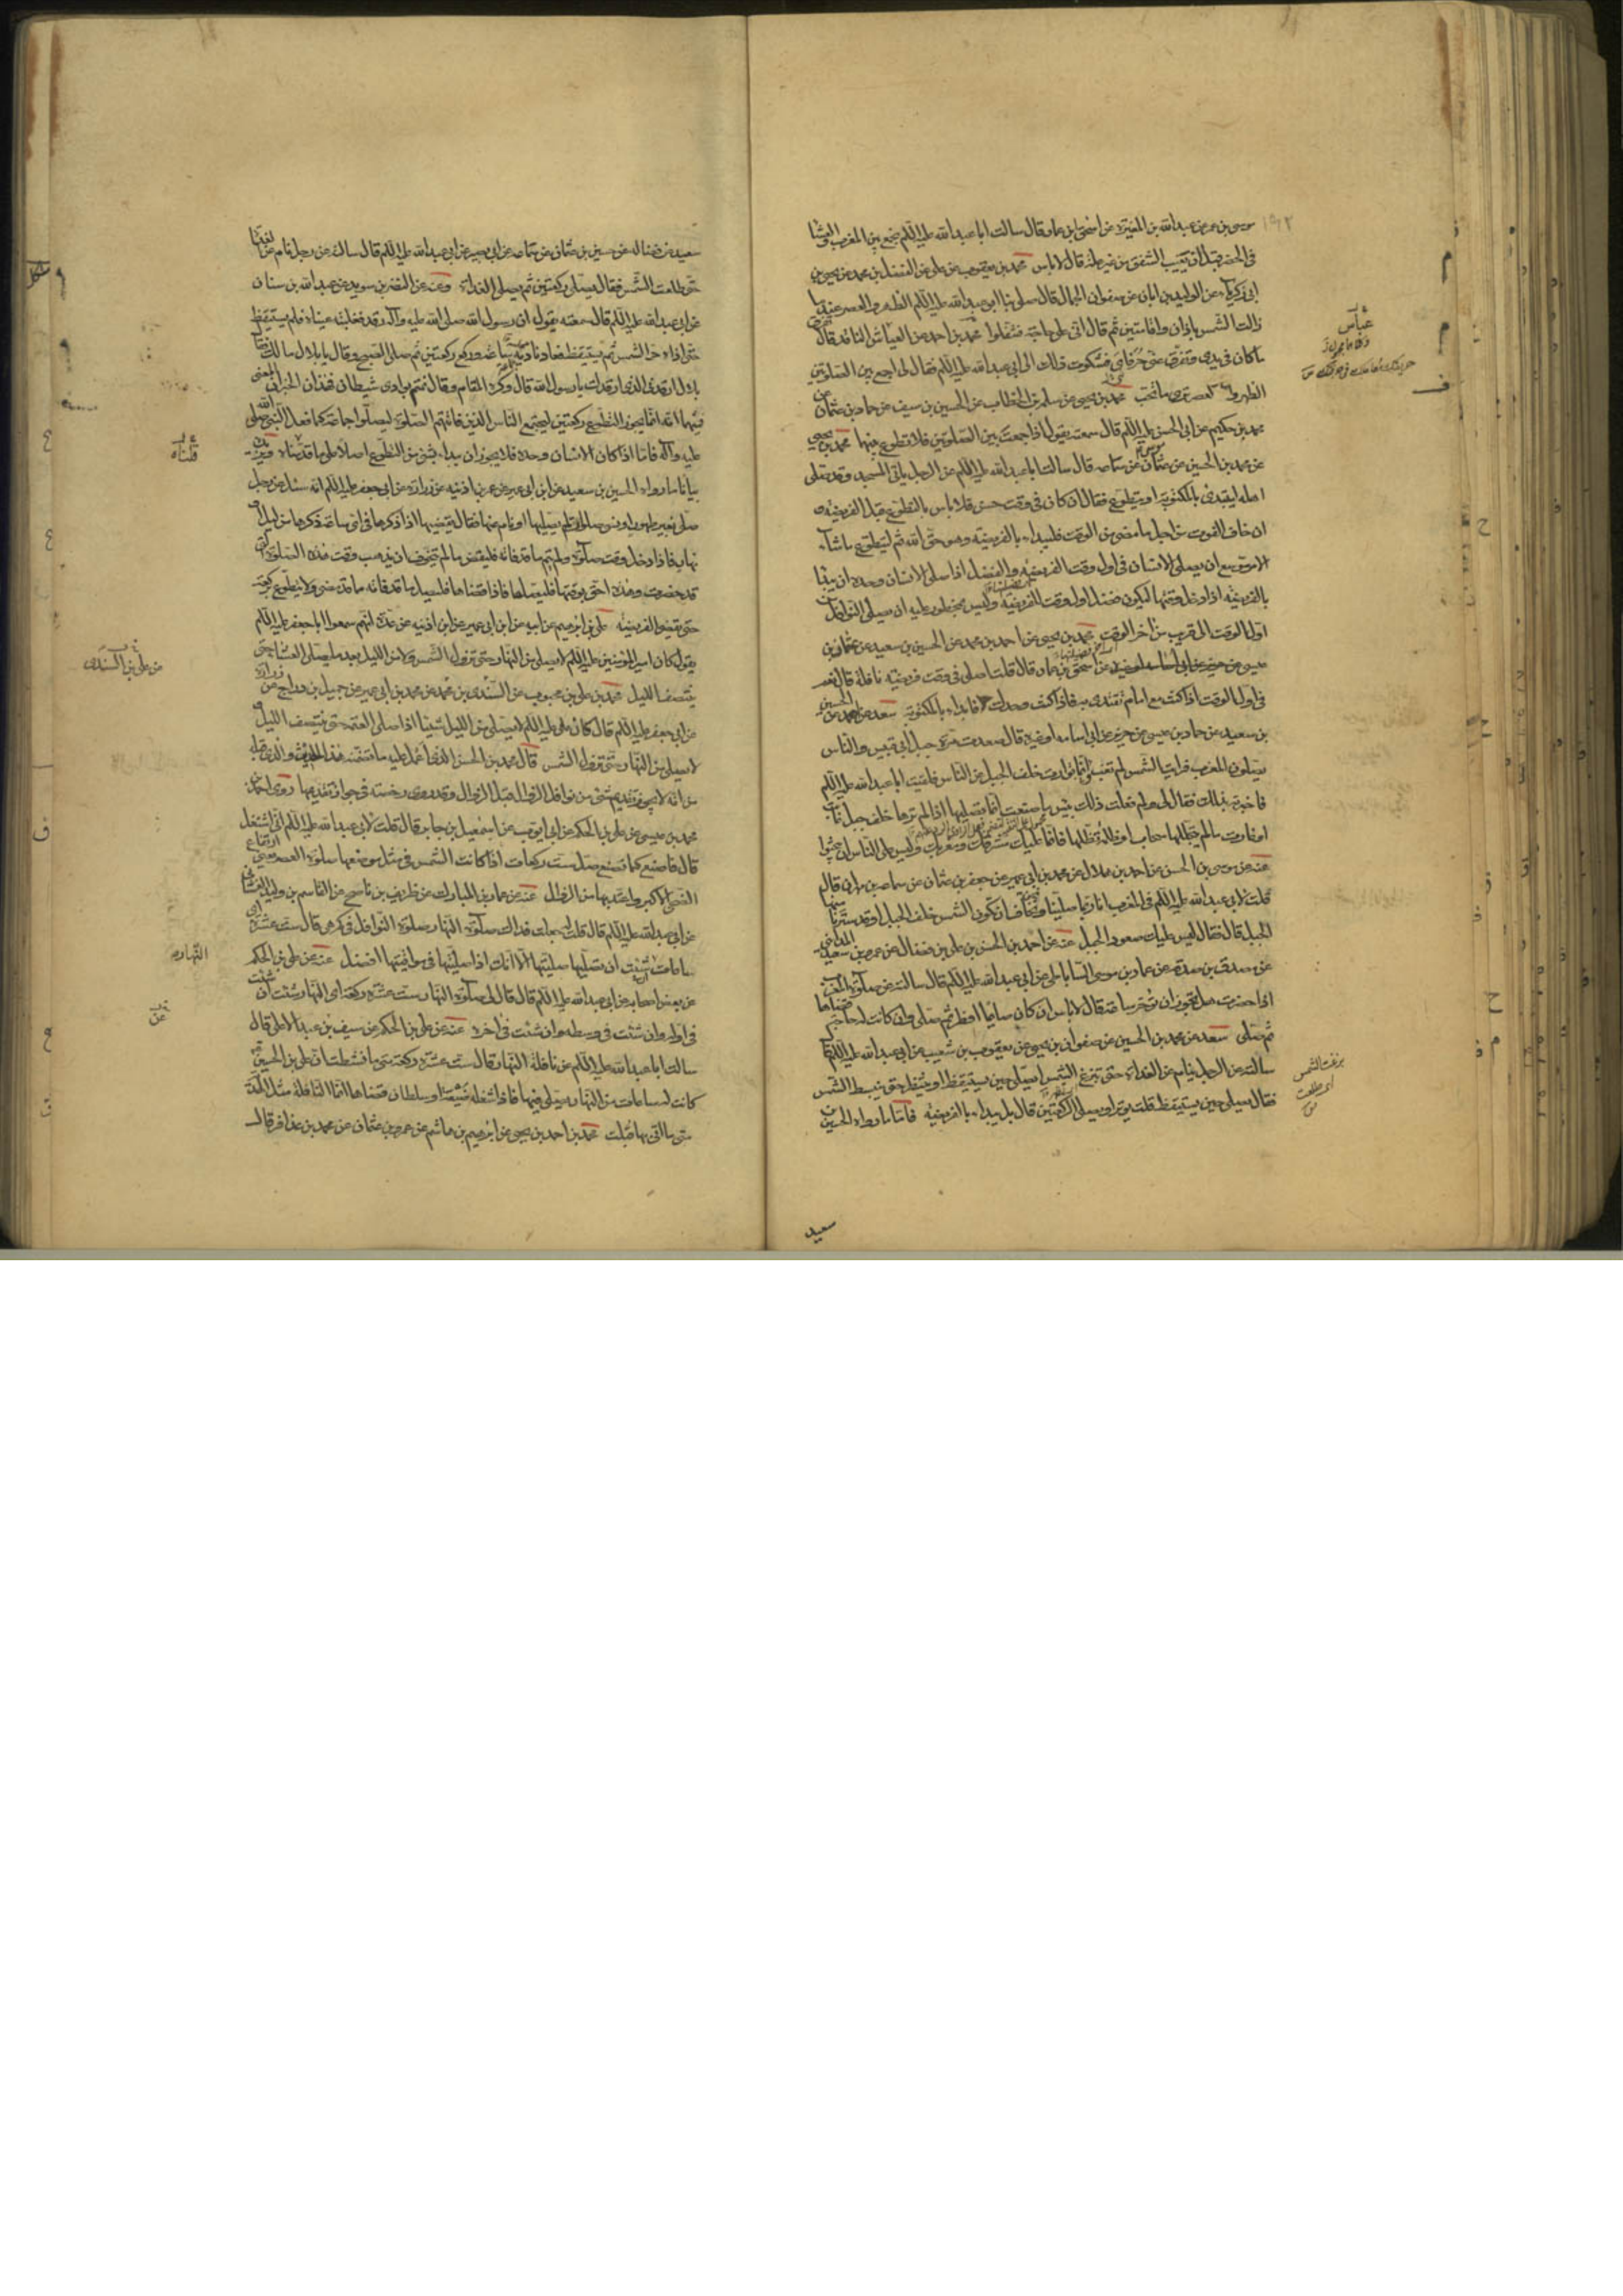 ١٩٢
موسى بن عمر عن عبدالله بن المغيرة عن اسحق بن عمار قال سالت ابا عبدالله عليه السلم نجمع بين المغرب والعشا
فى الحضر قبل ان يغيب الشفق من غير علة قال لا باس محمد بن يعقوب عن على عن الفضل بن محمد عن يحيى بن
ابى زكريا عن الوليد بن ابان عن صفوان الجمال قال صلى بنا ابو عبدالله عليه السلم الظهر والعصر عند ما
زالت الشمس باذان واقامتين ثم قال انى على حاجة فتنفلوا محمد بن احمد عن العباس الناقد قال
ما كان فى يدى وتفرق عنى حرفائى فشكوت ذلك الى ابى عبدالله عليه السلم فقال لى اجمع بين الصلوتين
الظهر والعصر ترى ما تحب محمد بن يحيى عن سلمة بن الخطاب عن الحسين بن سيف عن حماد بن عثمان عن
محمد بن حكيم عن ابى الحسن عليه السلم قال سمعته يقول اذا جمعت بين الصلوتين فلا تطوع بينهما محمد بن يحيى
عن محمد بن الحسين عن عثمان عن سماعه قال سالت ابا عبدالله عليه السلم عن الرجل ياتى المسجد وقد صلى
اهله ايبتدئ بالمكتوبة او يتطوع فقال ان كان فى وقت حسن فلا باس بالتطوع قبل الفريضة و
ان خاف الفوت من اجل ما مضى من الوقت فليبداء بالفريضة وهو حق الله ثم ليتطوع ما شاء
الامر موسع ان يصلى الانسان فى اول وقت الفريضة والفضل اذا صلى الانسان وحده ان يبدا
بالفريضة اذا دخل وقتها ليكون فضل اول وقت الفريضة وليس بمحظور عليه ان يصلى النوافل من
اول الوقت الى قريب من آخر الوقت محمد بن يحيى عن احمد بن محمد عن الحسين بن سعيد عن عثمان بن
عيسى عن اسحق بن عمار قال قلت اصلى فى وقت فريضة نافلة قال نعم
فى اول الوقت اذا كنت مع امام تقتدى به فاذا كنت وحدك فابداء بالمكتوبة سعد عن احمد عن الحسين
بن سعيد عن حماد بن عيسى عن حريز عن ابى اسامه او غيره قال صعدت مرة جبل ابى قبيس والناس
يصلون المغرب فرايت الشمس لم تغب انما توارت خلف الجبل عن الناس فلقيت ابا عبدالله عليه السلم
فاخبرته بذلك فقال لى ولم فعلت ذلك بئس ما صنعت انما تصليها اذا لم ترها خلف جبل غابت
او غارت ما لم يتجللها سحاب او ظلمة تظلها فانما عليك مشرقك ومغربك وليس على الناس ان يبحثوا
عنه عن موسى بن الحسن عن احمد بن هلال عن محمد بن ابى عمير عن جعفر بن عثمان عن سماعة بن مهران قال
قلت لابى عبدالله عليه السلم فى المغرب انا ربما صلينا ونحن نخاف ان تكون الشمس خلف الجبل او قد سترنا منها
الجبل قال فقال ليس عليك صعود الجبل عنه عن احمد بن الحسن بن على بن فضال عن عمرو بن سعيد المداينى
عن مصدق بن صدقه عن عمار بن موسى الساباطى عن ابى عبدالله عليه السلم قال سالته عن صلوة المغرب
اذا حضرت هل يجوز ان تؤخر ساعة قال لا باس ان كان صائما افطر ثم صلى وان كانت له حاجة قضاها
ثم صلى سعد عن محمد بن الحسين عن صفوان بن يحيى عن يعقوب بن شعيب عن ابى عبدالله عليه السلم قال
سالته عن الرجل ينام عن الغداة حتى تبزغ الشمس ايصلى حين يستيقظ او ينتظر حتى ينبسط الشمس
فقال يصلى حين يستيقظ قلت يوتر او يصلى الركعتين قال بل يبداء بالفريضة فاما ما رواه الحسين بن
سعيد
عباس
بزغت الشمس
اى طلعت
سعيد عن فضاله عن حسين بن عثمان عن سماعه عن ابى بصير عن ابى عبدالله عليه السلم قال سالته عن رجل نام عن الغداة
حتى طلعت الشمس فقال يصلى ركعتين ثم يصلى الغداة وعنه عن النضر بن سويد عن عبدالله بن سنان
عن ابى عبدالله عليه السلم قال سمعته يقول ان رسول الله صلى الله عليه وآله رقد فغلبته عيناه فلم يستيقظ
حتى اذاه حر الشمس ثم استيقظ فعاد ناديه ساعة وركع ركعتين ثم صلى الصبح وقال يا بلال مالك فقال
بلال ارقدنى الذى ارقدك يا رسول الله قال وكره المقام وقال نمتم بوادى شيطان فهذان الخبران المعنى
فيهما انه انما يجوز التطوع بركعتين ليجتمع الناس الذين فاتتهم الصلوة ليصلوا جماعة كما فعل النبى صلى الله
عليه وآله فاما اذا كان الانسان وحده فلا يجوز ان يبداء بشئ من التطوع اصلا على ما قدمناه ويزيده
بيانا ما رواه الحسين بن سعيد عن ابن ابى عمير عن عمر بن اذينه عن زراره عن ابى جعفر عليه السلم انه سئل عن رجل
صلى بغير طهور او نسى صلوات لم يصليها او نام عنها فقال يقضيها اذا ذكرها فى اى ساعة ذكرها من ليل او
نهار فاذا دخل وقت صلوة ولم يتم ما قد فاته فليقض ما لم يتخوف ان يذهب وقت هذه الصلوة التى
قد حضرت وهذه احق بوقتها فليصلها فاذا قضاها فليصل ما قد فاته ما قد مضى ولا يتطوع بركعة
حتى يقضى الفريضة على بن ابرهيم عن ابيه عن ابن ابى عمير عن ابن اذينه عن عدة انهم سمعوا ابا جعفر عليه السلم
يقول كان امير المؤمنين عليه السلم لا يصلى من النهار حتى تزول الشمس ولا من الليل بعد ما يصلى العشا حتى
ينتصف الليل محمد بن على بن محبوب عن السندى بن محمد عن محمد بن ابى عمير عن جميل بن دراج عن زرارة
عن ابى جعفر عليه السلم قال كان على عليه السلم لا يصلى من الليل شيئا اذا صلى العتمة حتى ينتصف الليل و
لا يصلى من النهار حتى تزول الشمس قال محمد بن الحسن الذى اعمل عليه ما تضمنه هذا الحديث والذى قبله
من انه لا يجوز تقديم شئ من نوافل الزوال قبل الزوال وقد روى رخصة فى جواز تقديمها روى احمد بن
محمد بن عيسى عن على بن الحكم عن ابى ايوب عن اسمعيل بن جابر قال قلت لابى عبدالله عليه السلم انى اشتغل
قال فاصنع كما نصنع صل ست ركعات اذا كانت الشمس فى مثل موضعها صلوة العصر يعنى ارتفاع
الضحى الاكبر واعتد بها من الزوال عنه عن عمار بن المبارك عن ظريف بن ناصح عن القاسم بن وليد الغفارى
عن ابى عبدالله عليه السلم قال قلت له جعلت فداك صلوة النهار صلوة النوافل فى كم هى قال ست عشرة اى
ساعات شئت ان تصليها صليتها الا انك اذا صليتها فى مواقيتها افضل عنه عن على بن الحكم
عن بعض اصحابه عن ابى عبدالله عليه السلم قال قال لى صلوة النهار ست عشرة ركعة اى النهار شئت ان شئت
فى اوله وان شئت فى وسطه وان شئت فى اخره عنه عن على بن الحكم عن سيف بن عبد الاعلى قال
سالت ابا عبدالله عليه السلم عن نافلة النهار قال ست عشرة ركعة متى ما نشطت ان على بن الحسين
كانت له ساعات من النهار يصلى فيها فاذا شغله ضيعة او سلطان قضاها انما النافلة مثل الهدية
متى ما اتى بها قبلت محمد بن احمد بن يحيى عن ابرهيم بن هاشم عن عمرو بن عثمان عن محمد بن عذافر قال
قلناه
عن على بن السندى
النهارية
عن